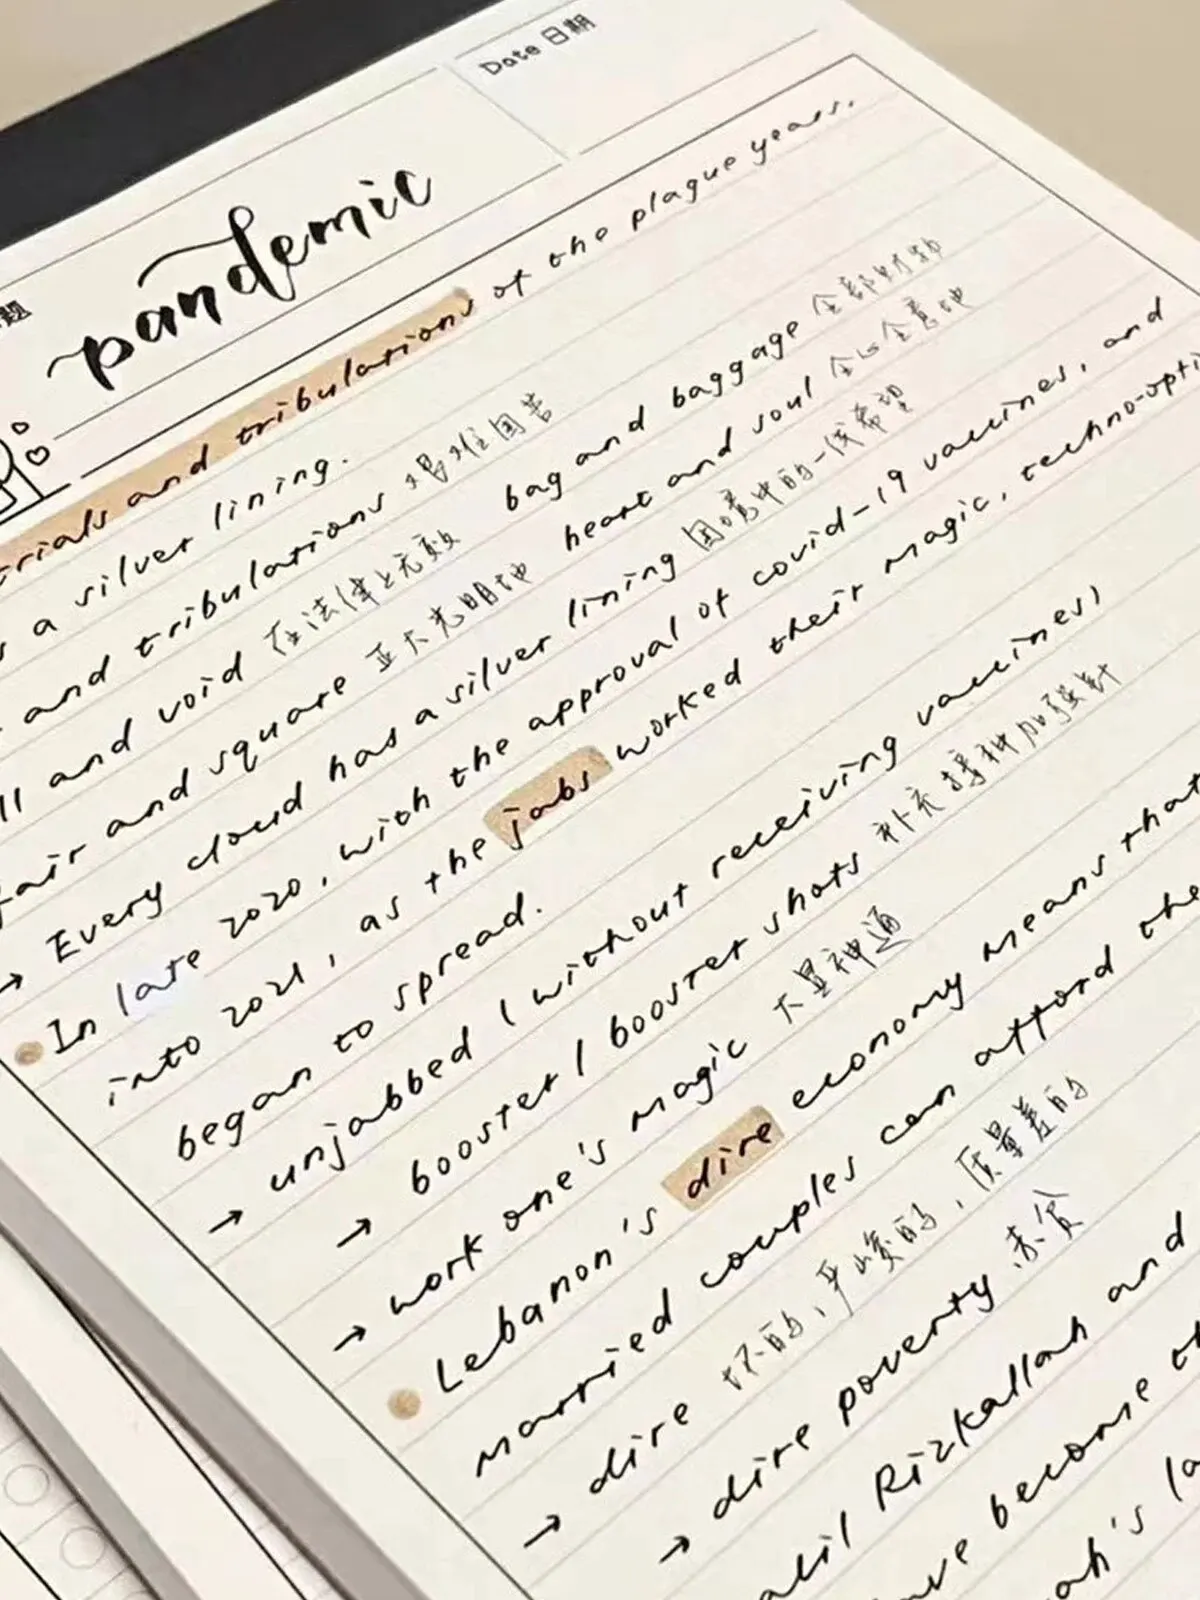 Date 日期
题
pandemic
trials and tribulations of the plague years.
a silver lining.
and tribulations 艰难困苦 bag and baggage 全部财物
and void 在法律上无效 heart and soul 全心全意地
fair and square 正大光明地
→ Every cloud has a silver lining 困境中的一线希望
In late 2020, with the approval of covid-19 vaccines, and
into 2021, as the jabs worked their magic, techno-opti
began to spread.
→ unjabbed (without receiving vaccines)
→ booster / booster shots 补充接种加强针
→ work one's magic 大显神通
Lebanon's dire economy means that
married couples can afford the
→ dire 坏的, 严峻的, 质量差的
→ dire poverty 赤贫
Rizkallah and
become
ah's